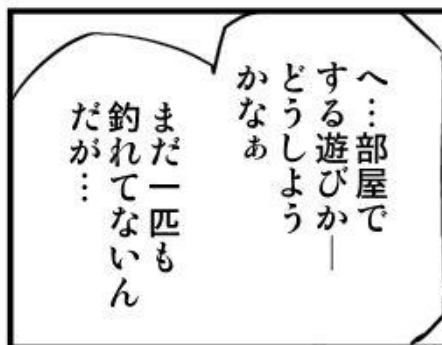 へ…部屋で
する遊びか―
どうしよう
かなぁ
まだ一匹も
釣れてないん
だが…